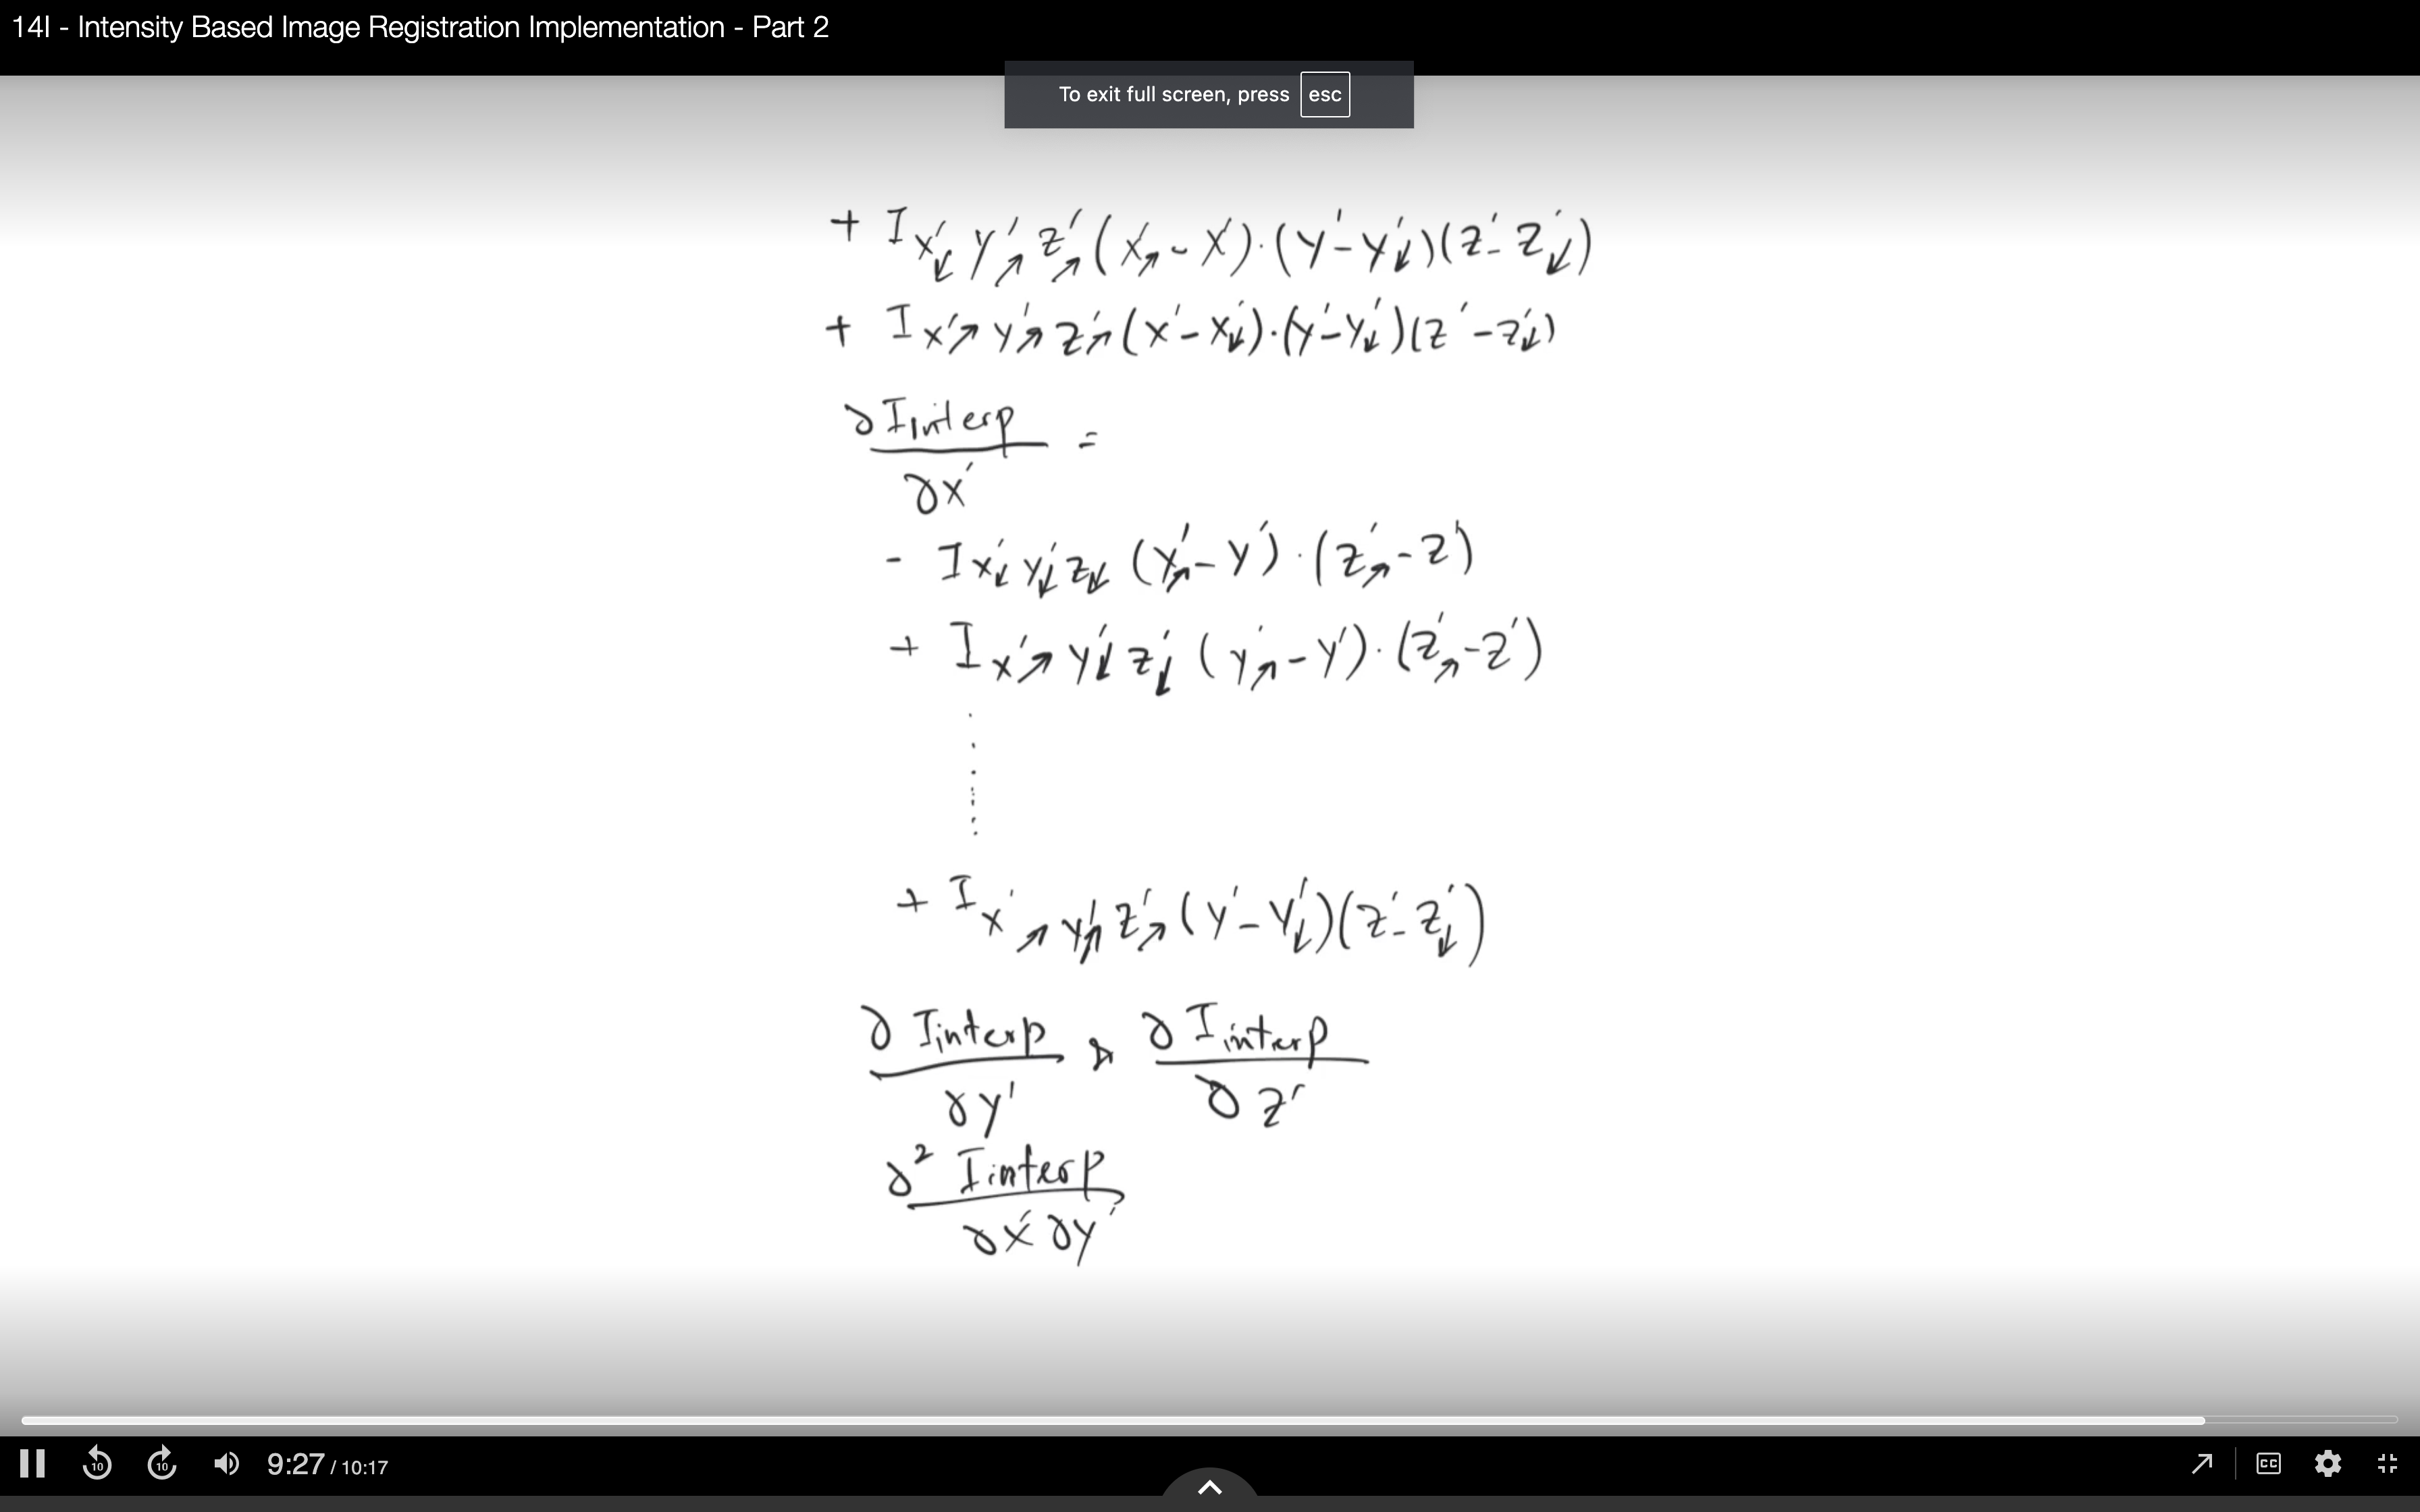 14I - Intensity Based Image Registration Implementation - Part 2
To exit full screen, press esc
+ I x'↙ y'↗ z'↗ (x'↗ - x') · (y' - y'↓)(z' - z'↙)
+ I x'↗ y'↗ z'↗ (x' - x'↓) · (y' - y'↓)(z' - z'↓)
∂ Iinterp
=
∂x'
- I x'↓ y'↓ z↙ (y'↗ - y') · (z'↗ - z')
+ I x'↗ y'↓ z'↓ (y'↗ - y') · (z'↗ - z')
+ I x'↗ y'↗ z'↗ (y' - y'↓)(z' - z'↓)
∂ Iinterp & ∂ Iinterp
∂y' ∂z'
∂² Iinterp
∂x'∂y'
10 10 9:27 / 10:17 CC